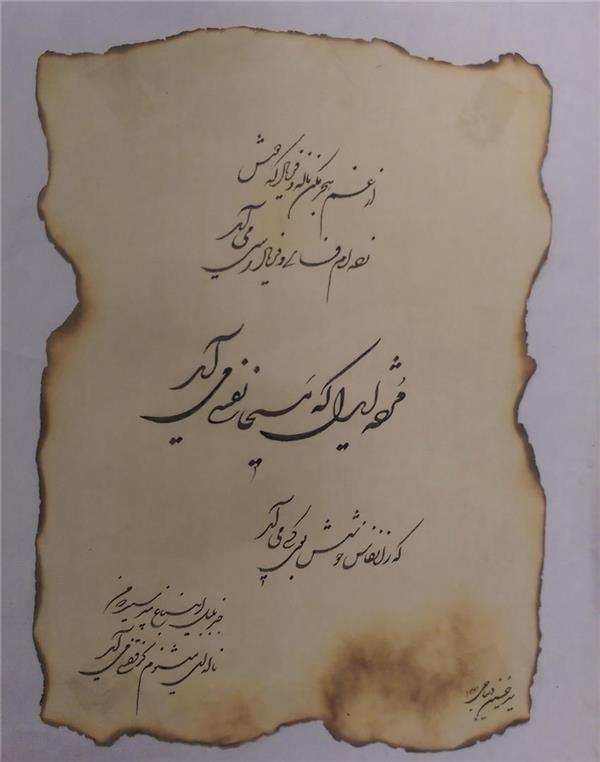 از غم هجر مکن ناله و فریاد که دوش
زده ام فالی و فریاد رسی می آید
مژده ای دل که مسیحا نفسی می آید
که ز انفاس خوشش بوی کسی می آید
خبر بلبل این باغ بپرسید که من
ناله ای می شنوم کز قفسی می آید
سید حسین